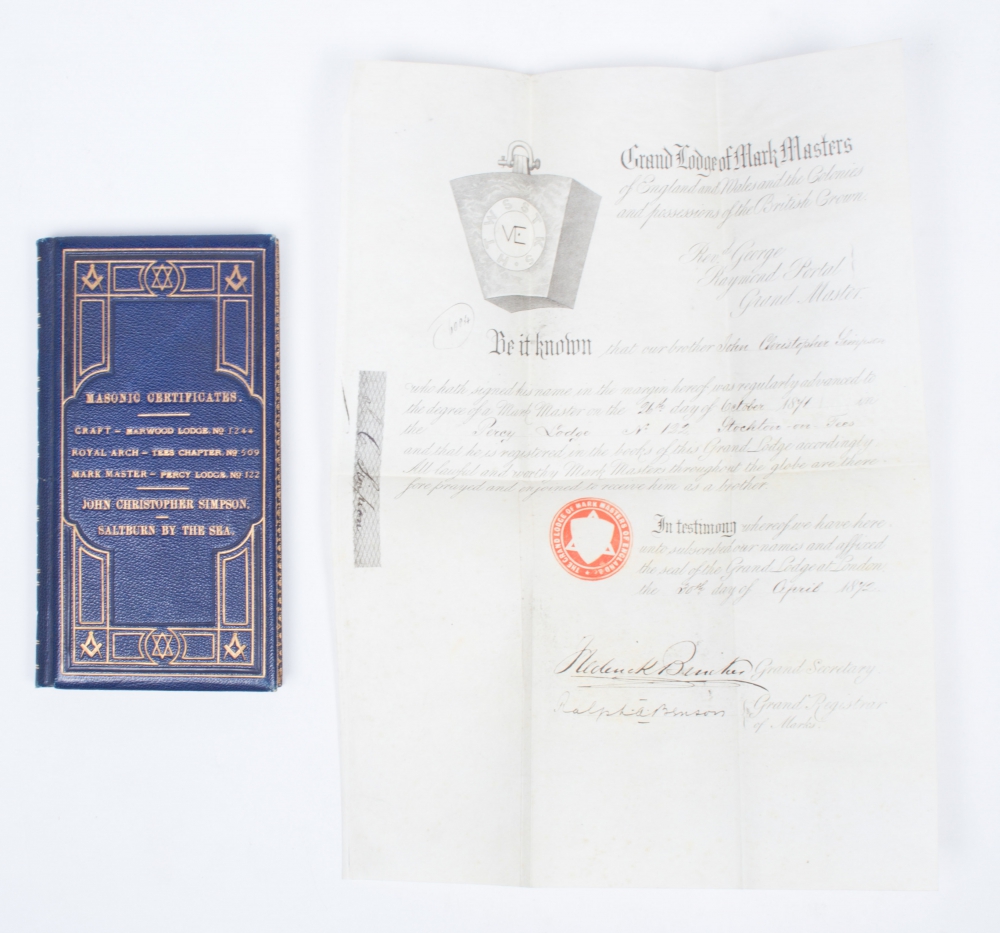 MASONIC CERTIFICATES.
CRAFT – MARWOOD LODGE. No 1244
ROYAL ARCH – TEES CHAPTER. No 509
MARK MASTER – PERCY LODGE. No 122
JOHN CHRISTOPHER SIMPSON.
SALTBURN BY THE SEA.
VE
Grand Lodge of Mark Masters
of England and Wales and the Colonies
and possessions of the British Crown.
Revd. George
Raymond Portal
Grand Master
Be it known that our brother John Christopher Simpson
who hath signed his name in the margin hereof was regularly advanced to
the degree of a Mark Master on the 26th day of October 1871 in
the Percy Lodge No 122 Stockton on Tees
and that he is registered in the books of this Grand Lodge accordingly.
All lawful and regular Mark Masters throughout the globe are there-
fore prayed and enjoined to receive him as a brother
THE GRAND LODGE OF MARK MASTERS OF ENGLAND &c
In testimony whereof we have here-
unto subscribed our names and affixed
the seal of the Grand Lodge at London
the 20th day of April 1872
Frederick Binckes Grand Secretary
Ralph A Benson Grand Registrar
of Marks